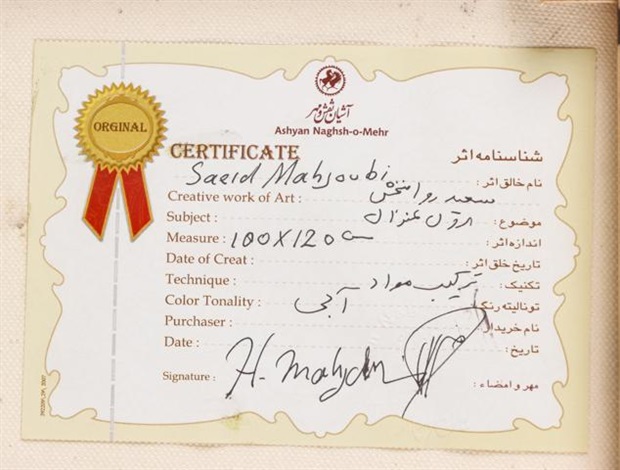 آشیان نقش و مهر
Ashyan Naghsh-o-Mehr
ORGINAL
CERTIFICATE
شناسنامه اثر
Saeid Mahjoubi
نام خالق اثر :
Creative work of Art :
سعید روانبخش
Subject :
بدون عنوان
موضوع :
Measure : 100x120 cm
اندازه اثر :
Date of Creat :
تاریخ خلق اثر :
Technique :
ترکیب مواد
تکنیک :
Color Tonality :
آبی
تونالیته رنگ :
Purchaser :
نام خریدار :
Date :
تاریخ :
Signature :
مهر و امضاء :